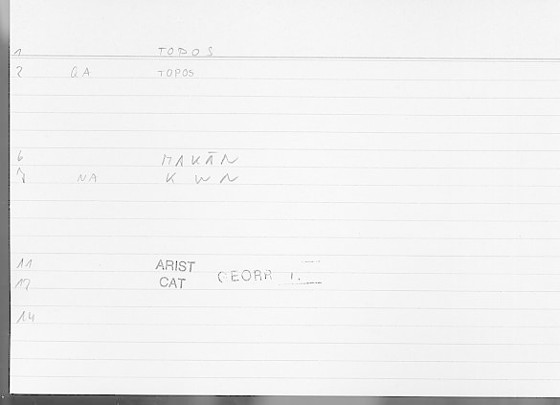 1 TOPOS
2 QA TOPOS
6 MAKĀN
7 NA K W N
11 ARIST
12 CAT GEORR 1.
14